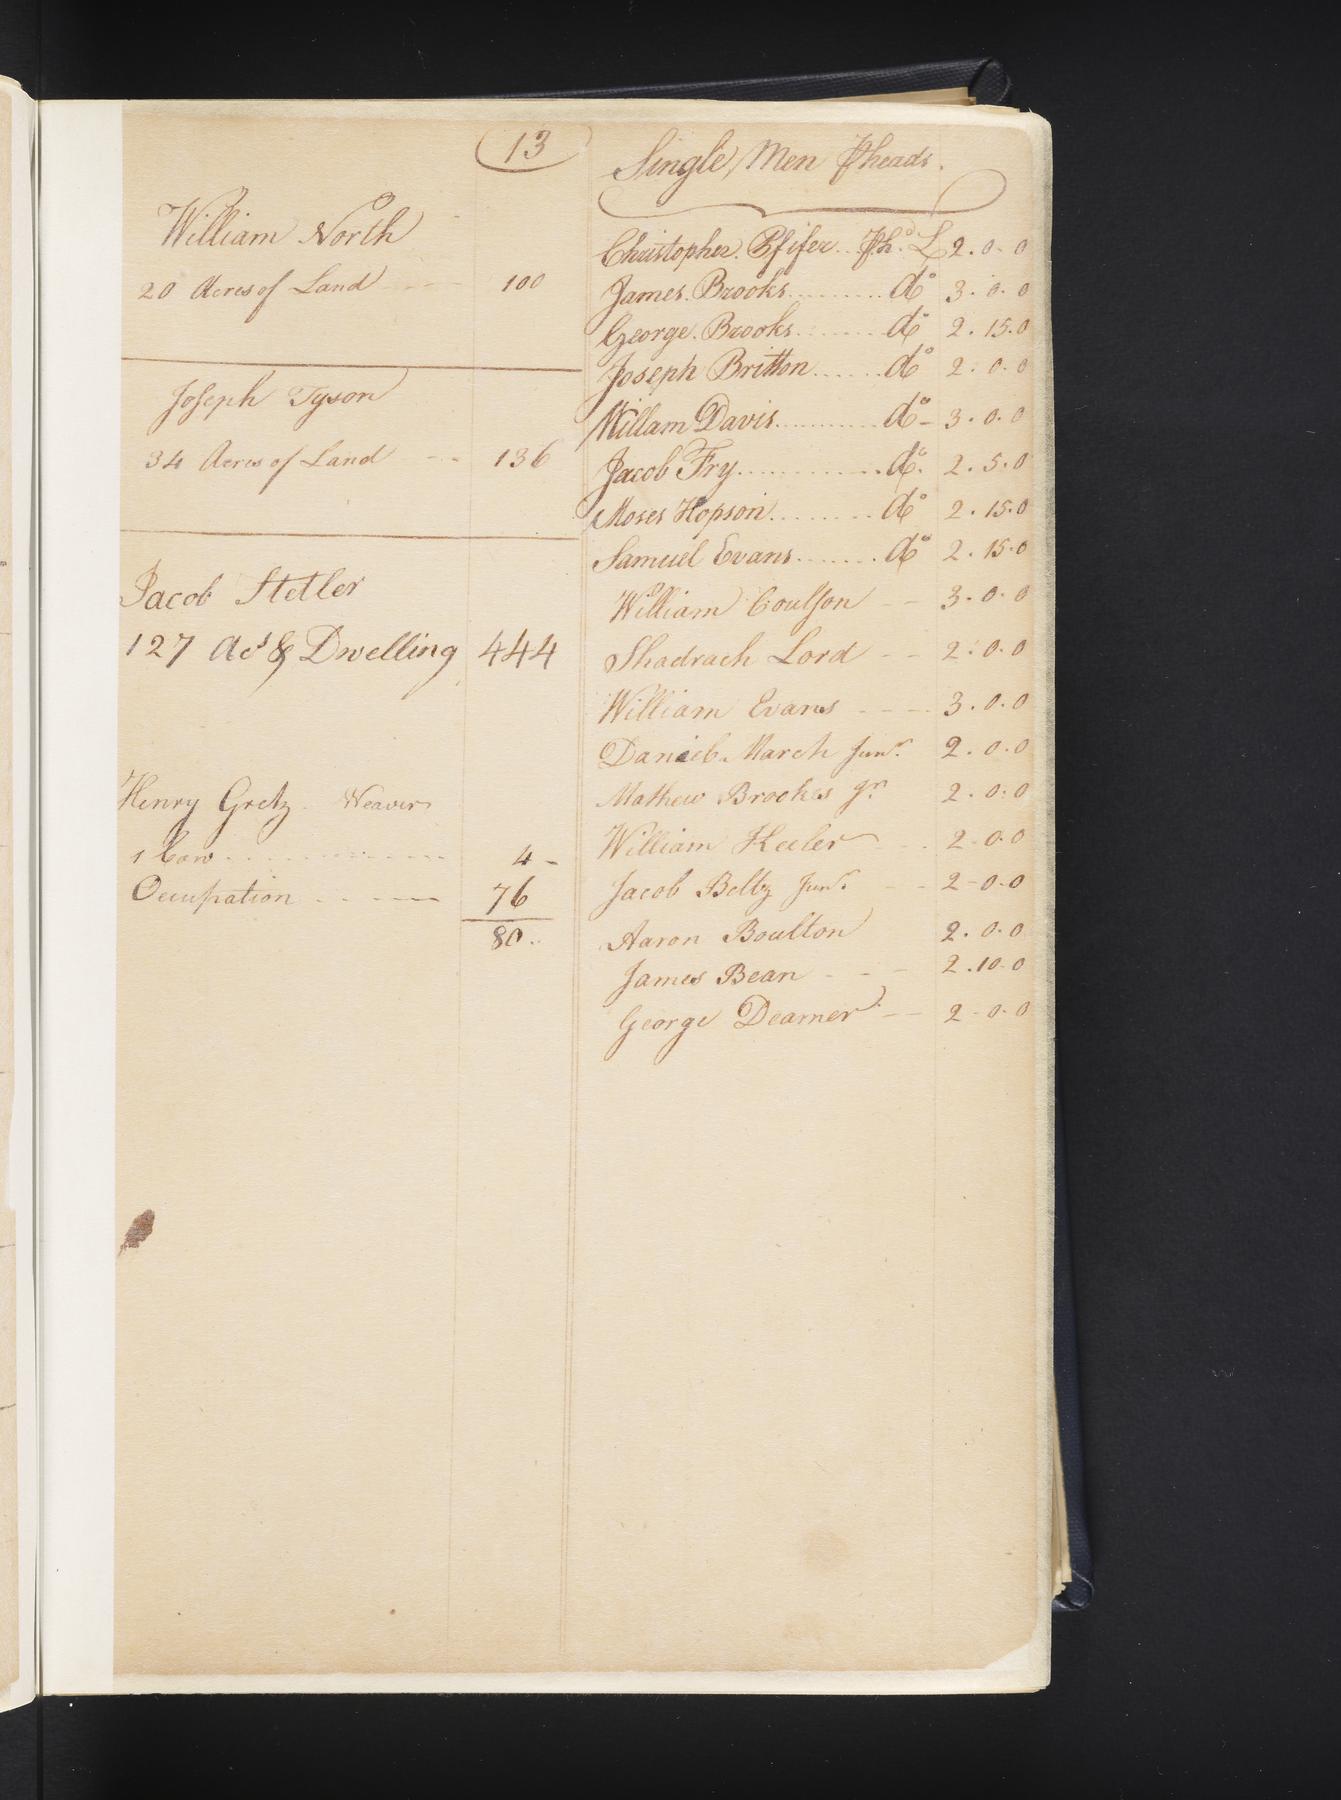 13
William North
20 Acres of Land 100
Joseph Tyson
34 Acres of Land 136
Jacob Stetler
127 Acs & Dwelling 444
Henry Gretz Weaver
1 Cow 4
Occupation 76
80
Single Men ⅌ heads.
Christopher Pfifer ⅌ hd. £ 2.0.0
James Brooks do 3.0.0
George Brooks do 2.15.0
Joseph Britton do 2.0.0
Willam Davis do 3.0.0
Jacob Fry do 2.5.0
Moses Hopson do 2.15.0
Samuel Evans do 2.15.0
William Coulson 3.0.0
Shadrach Lord 2.0.0
William Evans 3.0.0
Daniel March Junr. 2.0.0
Mathew Brookes Jn 2.0.0
William Keeler 2.0.0
Jacob Beltz Junr. 2.0.0
Aaron Boulton 2.0.0
James Bean 2.10.0
George Deamer 2.0.0